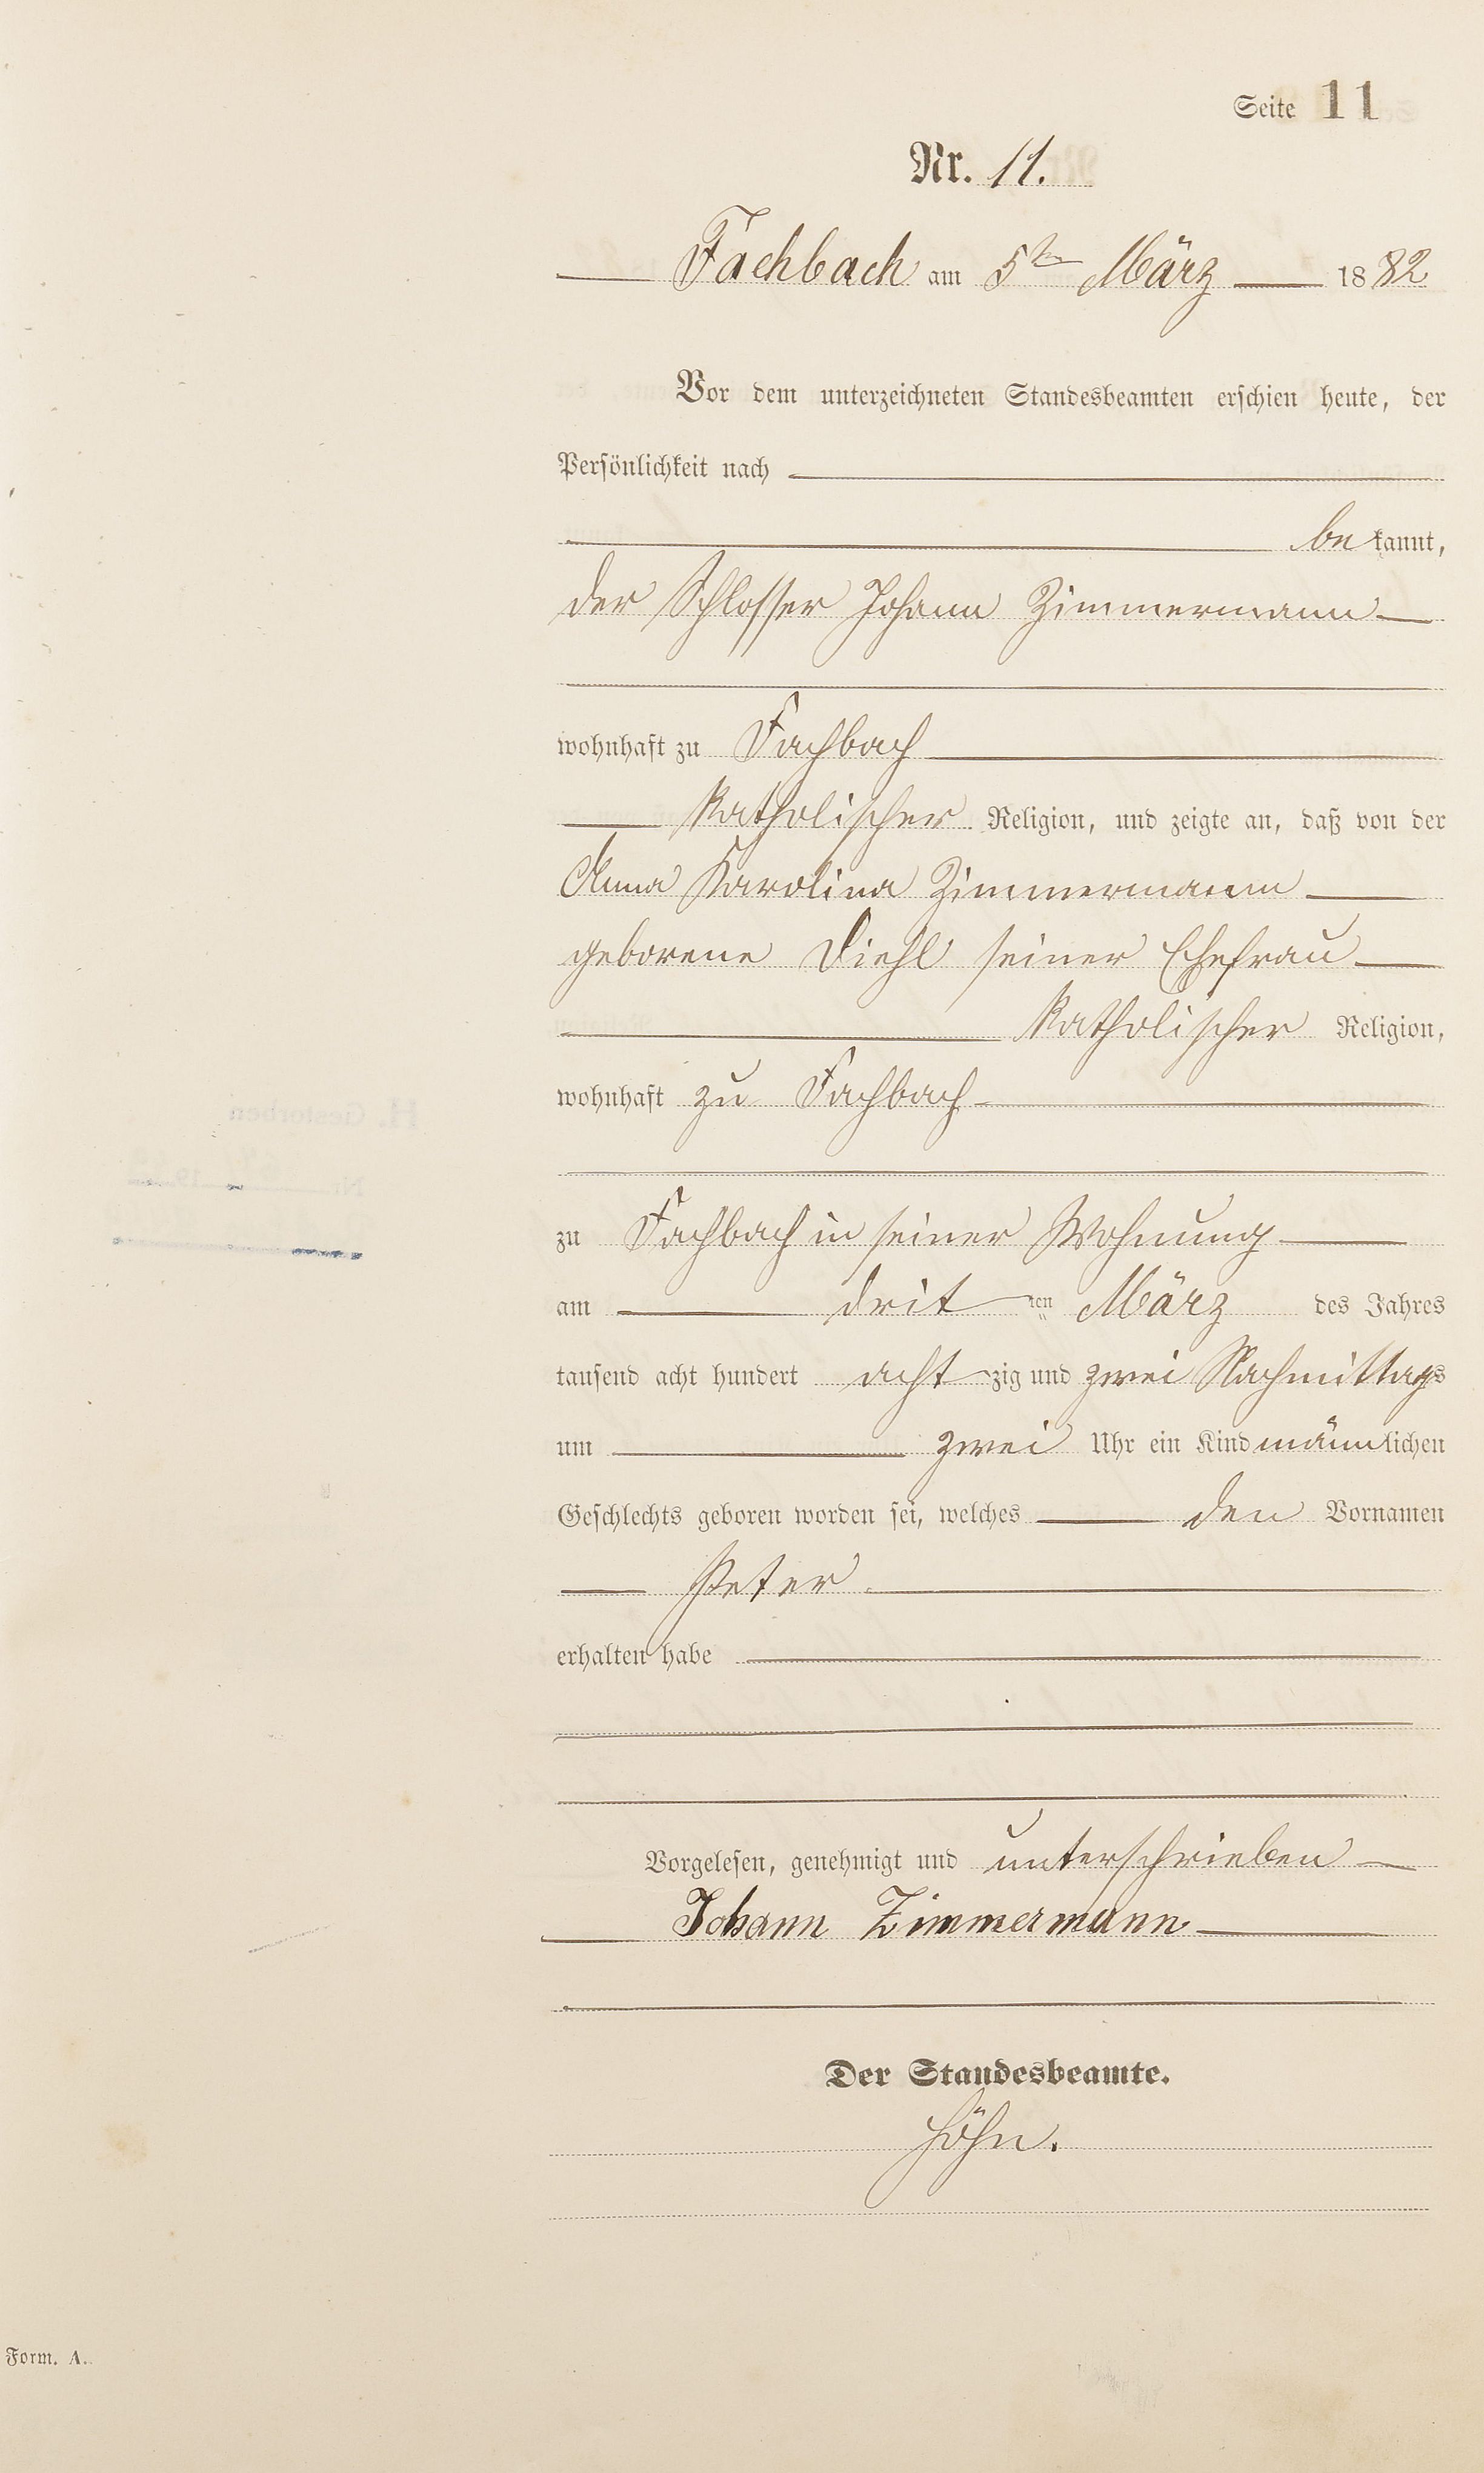 Seite 11
Nr. 11.
Fachbach am 5ten März 1882
Vor dem unterzeichneten Standesbeamten erschien heute, der
Persönlichkeit nach
bekannt,
der Schlosser Johann Zimmermann
wohnhaft zu Fachbach
katholischer Religion, und zeigte an, daß von der
Anna Karolina Zimmermann
geborene Diehl seiner Ehefrau
katholischer Religion,
wohnhaft zu Fachbach
zu Fachbach in seiner Wohnung
am dritten März des Jahres
tausend acht hundert achtzig und zwei Nachmittags
um zwei Uhr ein Kind männlichen
Geschlechts geboren worden sei, welches den Vornamen
Peter.
erhalten habe
Vorgelesen, genehmigt und unterschrieben
Johann Zimmermann
Der Standesbeamte.
Höhn.
Form. A.